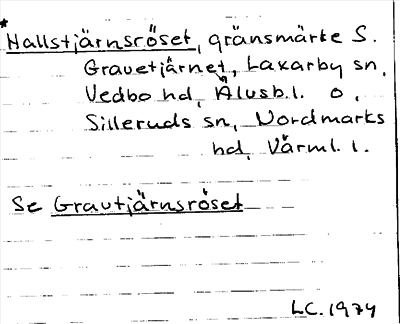 *
Hallstjärnsröset, gränsmärke S.
Gravetjärnet, Laxarby sn,
Vedbo hd, Älvsb.l. o,
Silleruds sn, Nordmarks
hd, Värml. l.
Se Grautjärnsröset
LC. 1974